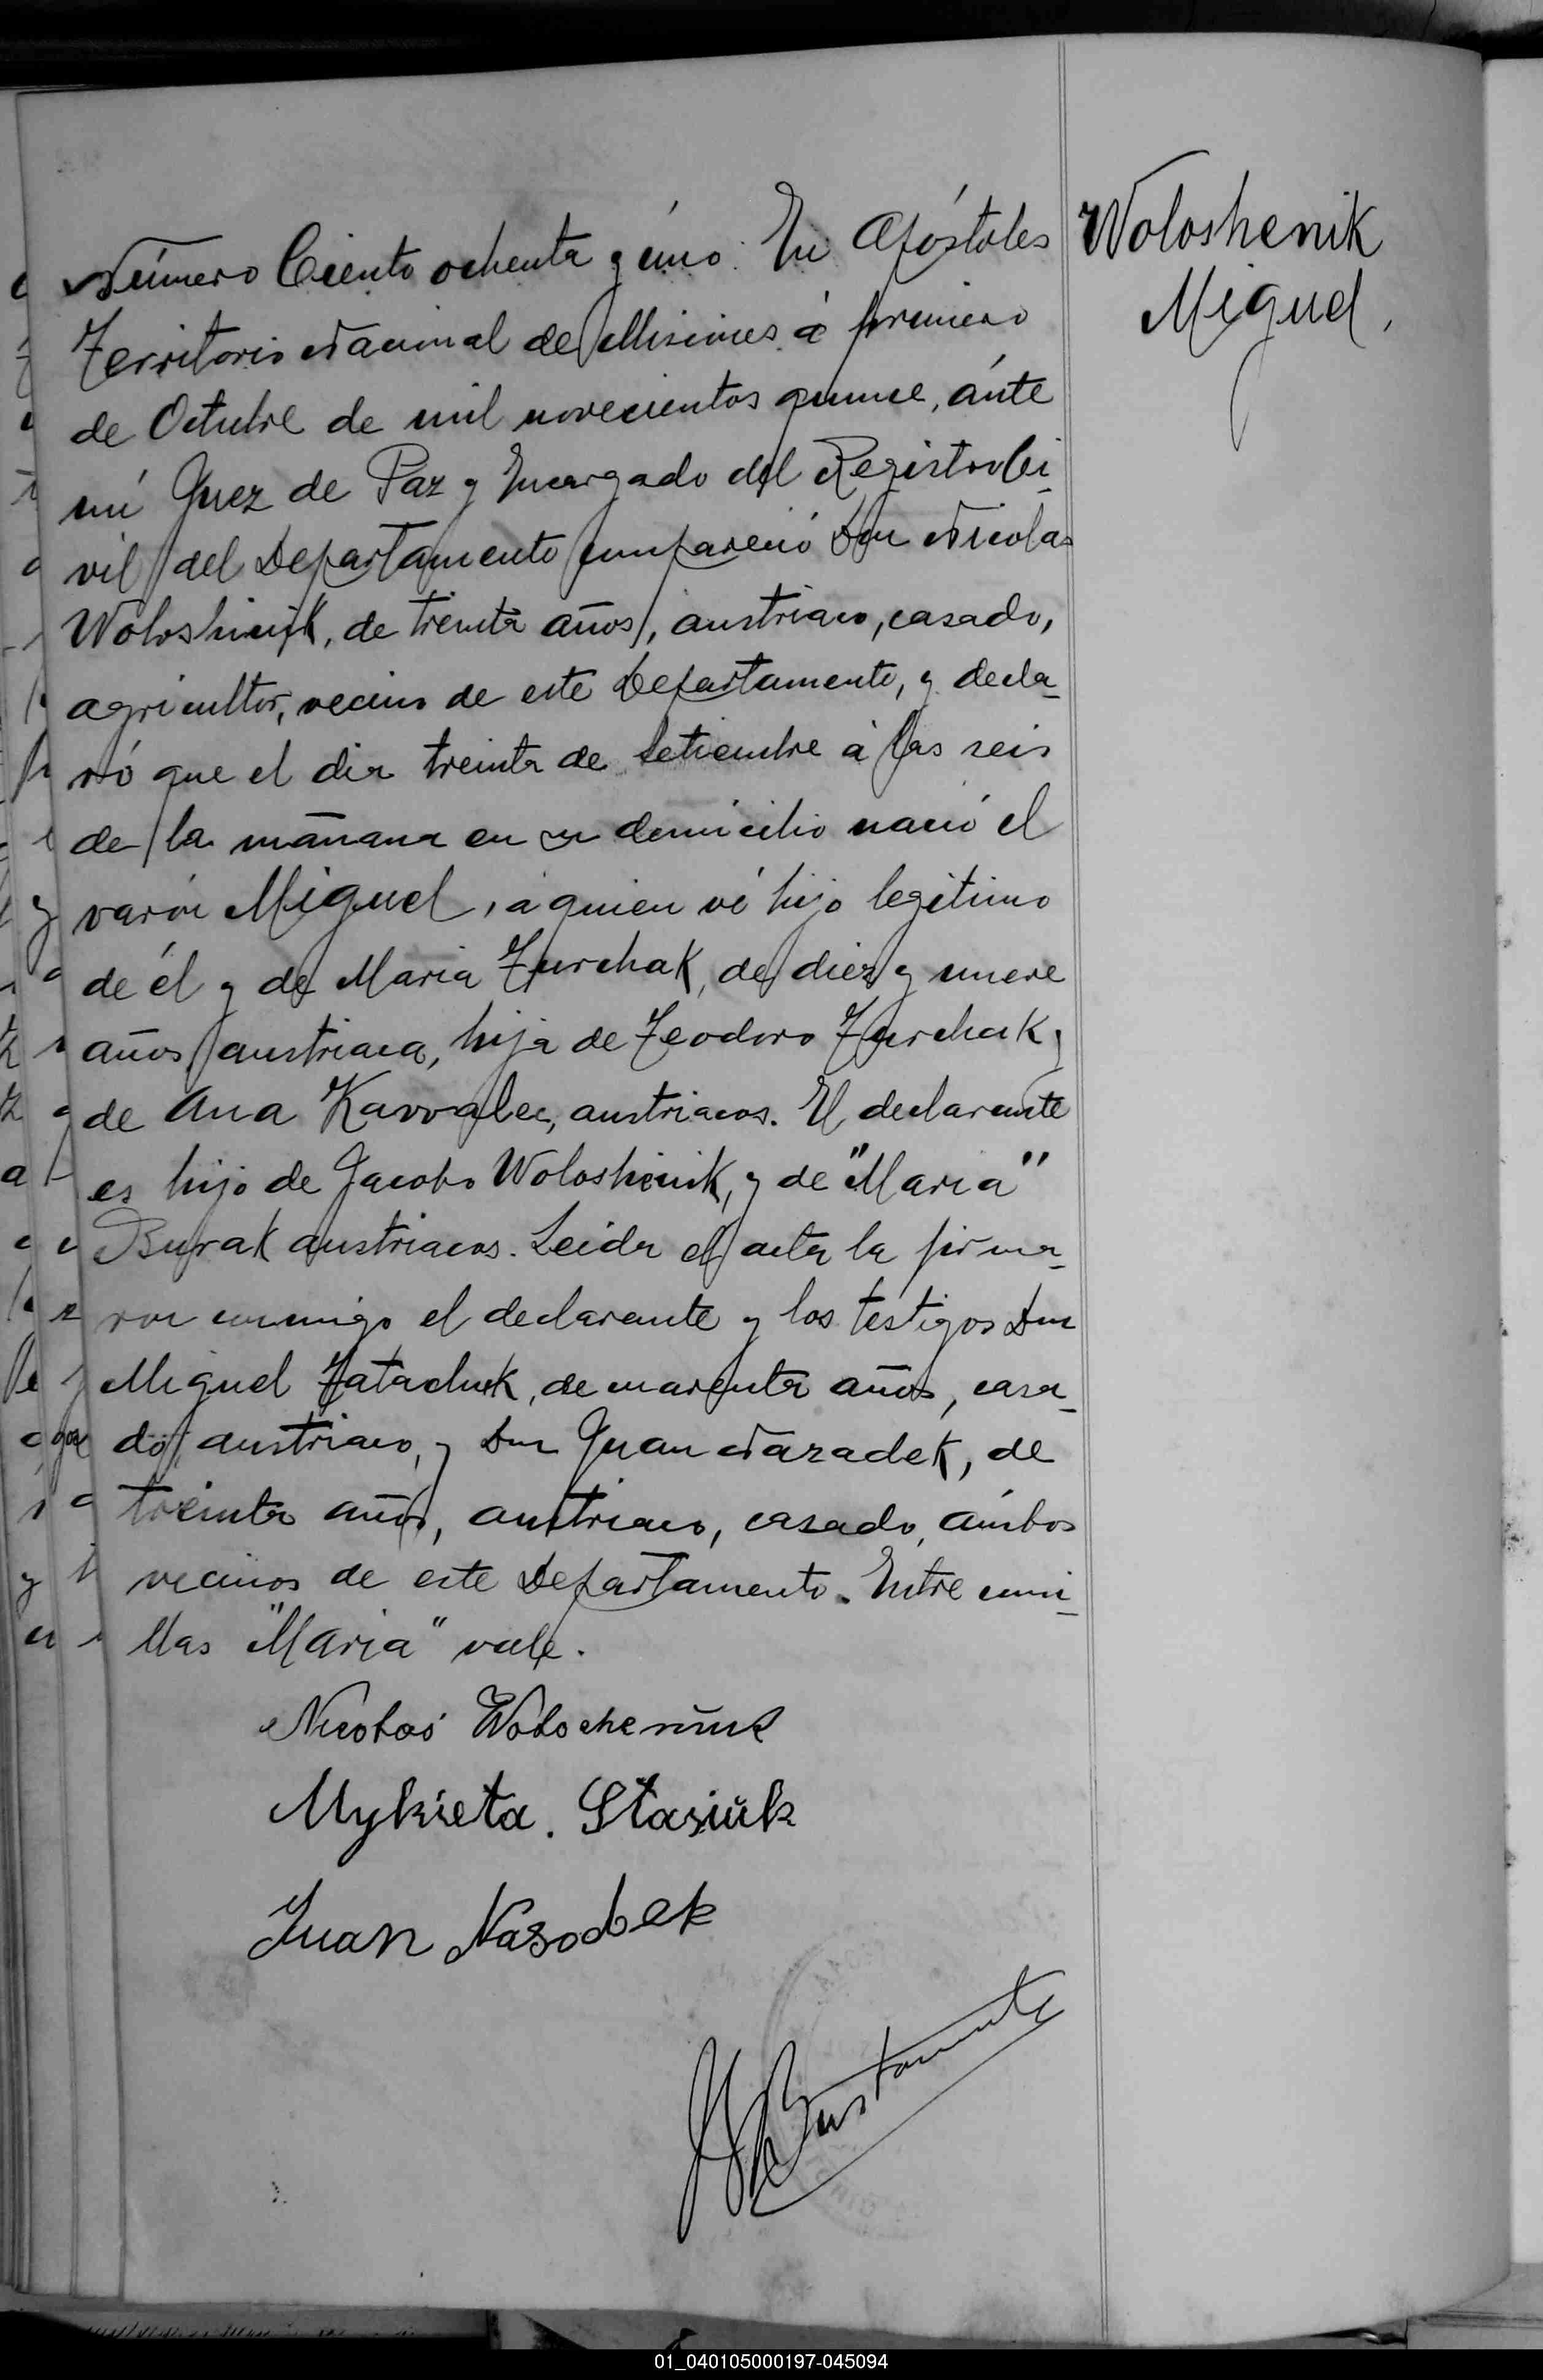 Woloshenik
Miguel,
Número Ciento ochenta y úno. En Apóstoles
Territorio Nacional de Misiones á primero
de Octubre de mil novecientos quince, ánte
mí Juez de Paz y Encargado del Registro Ci-
vil del Departamento compareció Don Nicolas
Woloshinik, de treinta años, austriaco, casado,
agricultor, vecino de este Departamento, y decla-
ró que el dia treinta de Setiembre á las seis
de la mañana en su domicilio nació el
varón Miguel, á quien ví hijo legítimo
de él y de Maria Turchak, de diez y nueve
años austriaca, hija de Teodoro Turchak y
de Ana Kavvalec, austriacos. El declarante
es hijo de Jacobo Woloshinik, y de "Maria"
Burak austriacos. Leida el acta la firma-
ron conmigo el declarante y los testigos Don
Miguel, de cuarenta años, casa-
do, austriaco, y Don Juan Nazadek, de
treinta años, austriaco, casado, ámbos
vecinos de este Departamento. Entre comi-
llas "Maria" vale.
Nicolas
Mykieta. Stasiuk
Juan Nasodek
Bustamante
01_040105000197-045094